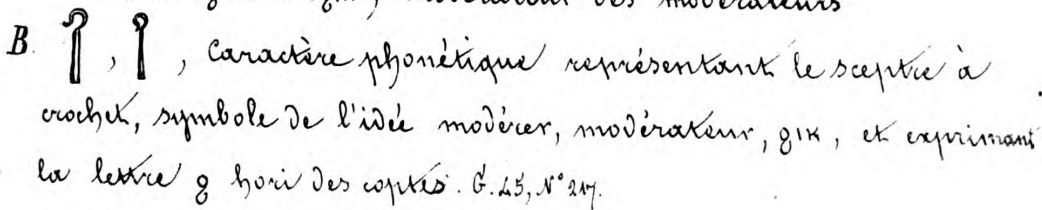 modérateur des modérateurs
B. 𓋾, 𓋾, Caractère phonétique représentant le sceptre à
crochet, symbole de l'idée modérer, modérateur, ϩⲓⲕ, et exprimant
la lettre ϩ hori des coptes. G. 45, N° 217.